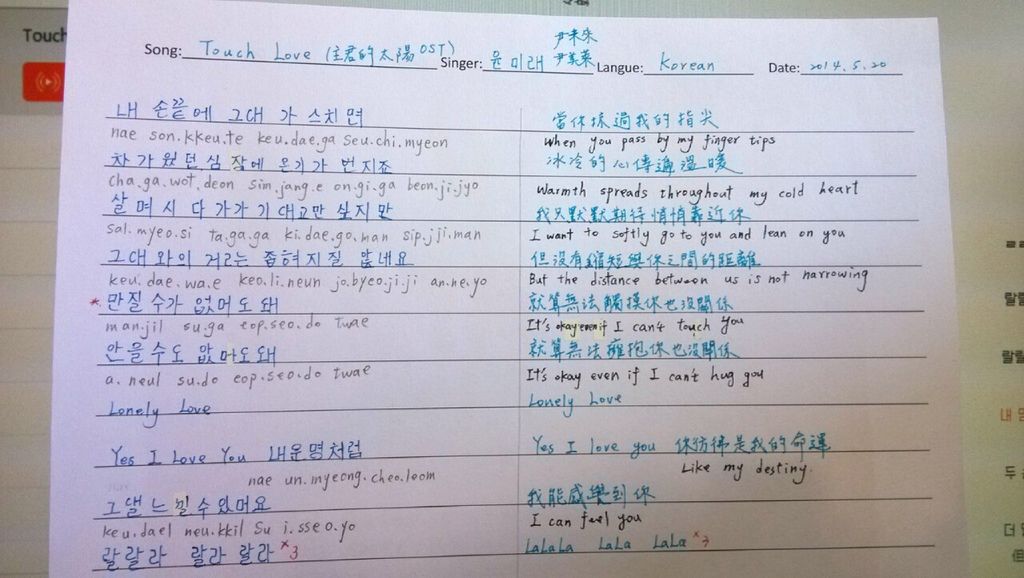 Touch
Song: Touch Love (主君的太陽 OST) Singer: 윤미래 尹未來 尹美萊 Langue: Korean Date: 2014.5.20
내 손끝에 그대가 스치면 當你抹過我的指尖
nae son.kkeu.te keu.dae.ga seu.chi.myeon When you pass by my finger tips
차가웠던 심장에 온기가 번지죠 冰冷的心傳遍溫暖
cha.ga.wot.deon sim.jang.e on.gi.ga beon.ji.jyo Warmth spreads throughout my cold heart
살며시 다가가 기대고만 싶지만 我只默默期待悄悄靠近你
sal.myeo.si ta.ga.ga ki.dae.go.man sip.jji.man I want to softly go to you and lean on you
그대와의 거리는 좁혀지질 않네요 但沒有縮短與你之間的距離
keu.dae.wa.e keo.li.neun jo.byeo.ji.ji an.ne.yo But the distance between us is not narrowing
* 만질 수가 없어도 돼 就算無法觸摸你也沒關係
man.jil su.ga eop.seo.do twae It's okay even if I can't touch you
안을 수도 없어도 돼 就算無法擁抱你也沒關係
a.neul su.do eop.seo.do twae It's okay even if I can't hug you
Lonely Love Lonely Love
Yes I Love You 내 운명처럼 Yes I love you 你彷彿是我的命運
nae un.myeong.cheo.leom Like my destiny.
그댈 느낄 수 있어요 我能感覺到你
keu.dael neu.kkil su i.sseo.yo I can feel you
랄랄라 랄라 랄라 ×3 LaLaLa LaLa LaLa ×3